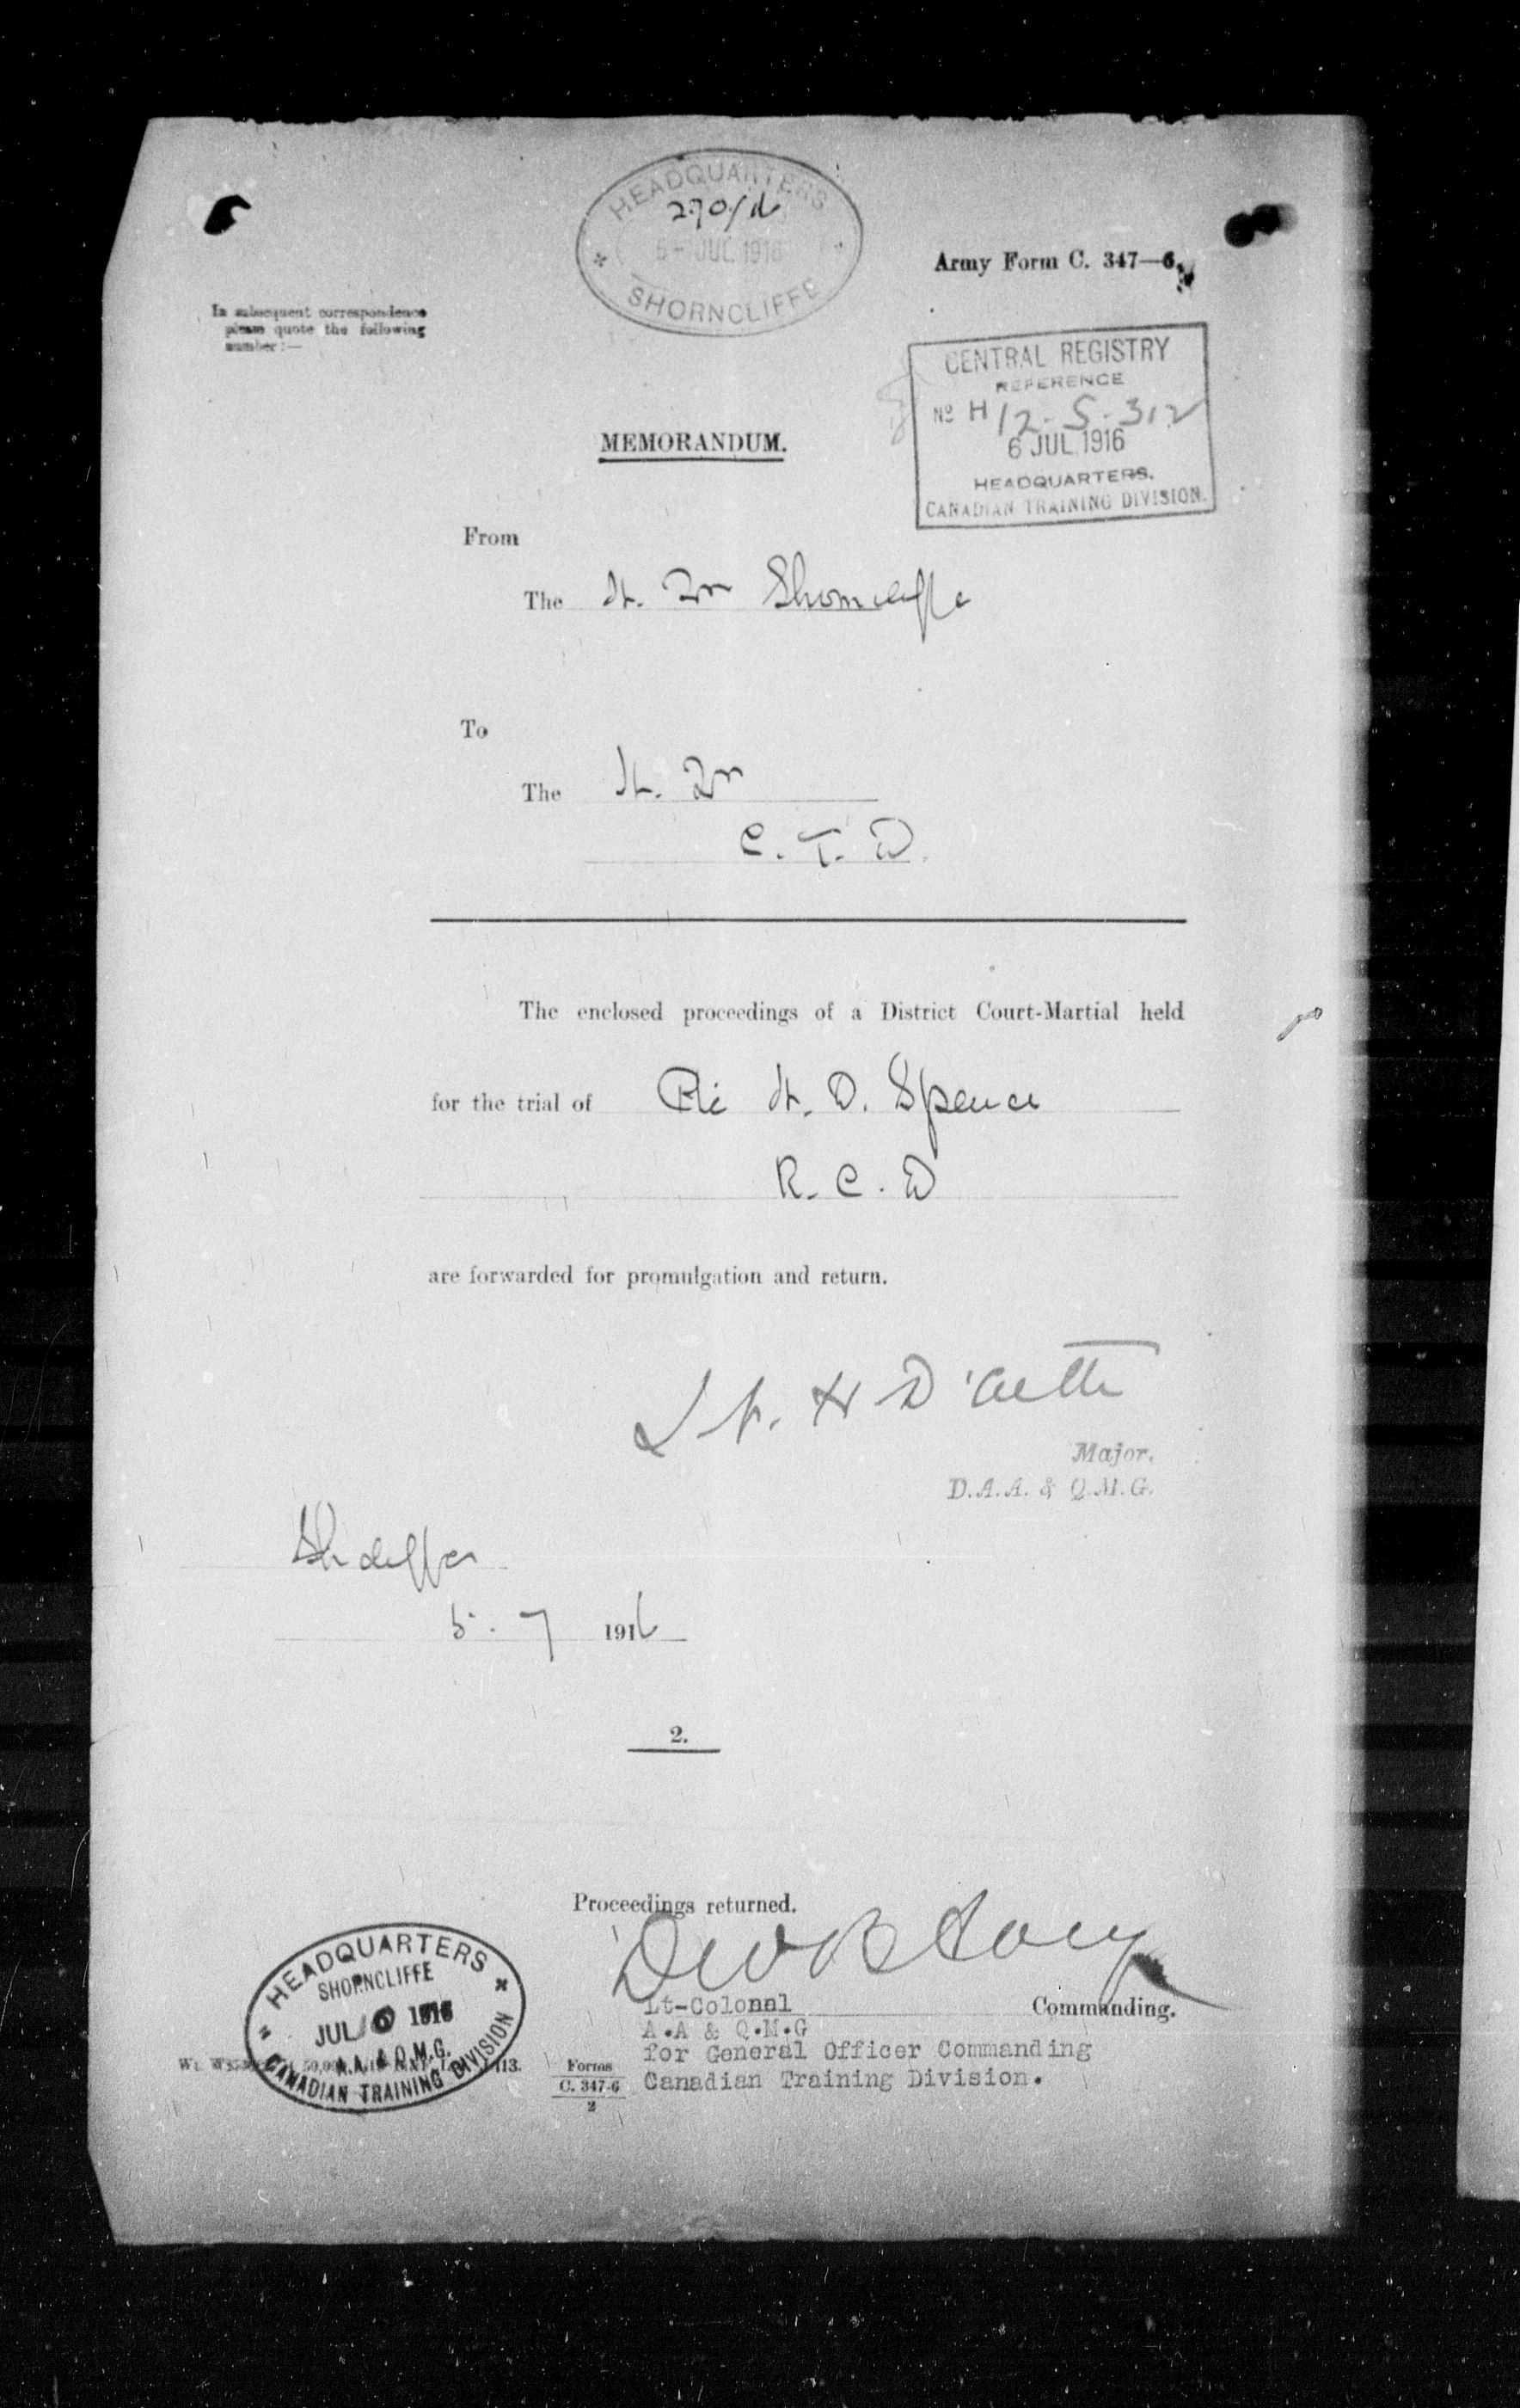 HEADQUARTERS
270/16
5-JUL 1916
SHORNCLIFFE
Army Form C. 347—6.
In subsequent correspondence
please quote the following
number:—
CENTRAL REGISTRY
REFERENCE
No H 12-5-312
6 JUL 1916
HEADQUARTERS.
CANADIAN TRAINING DIVISION.
MEMORANDUM.
From
The H. Qrs Shorncliffe
To
The H. Qrs
C. T. D.
The enclosed proceedings of a District Court-Martial held
for the trial of Pte H. D. Spence
R. C. D
are forwarded for promulgation and return.
Major.
D.A.A. & Q.M.G.
Shcliffe
5. 7 1916
2.
Proceedings returned.
Lt-Colonel Commanding.
A.A & Q.M.G
for General Officer Commanding
Canadian Training Division.
HEADQUARTERS
SHORNCLIFFE
JUL 6 1916
A.A. & Q.M.G.
CANADIAN TRAINING DIVISION
Forms
C. 347-6
2